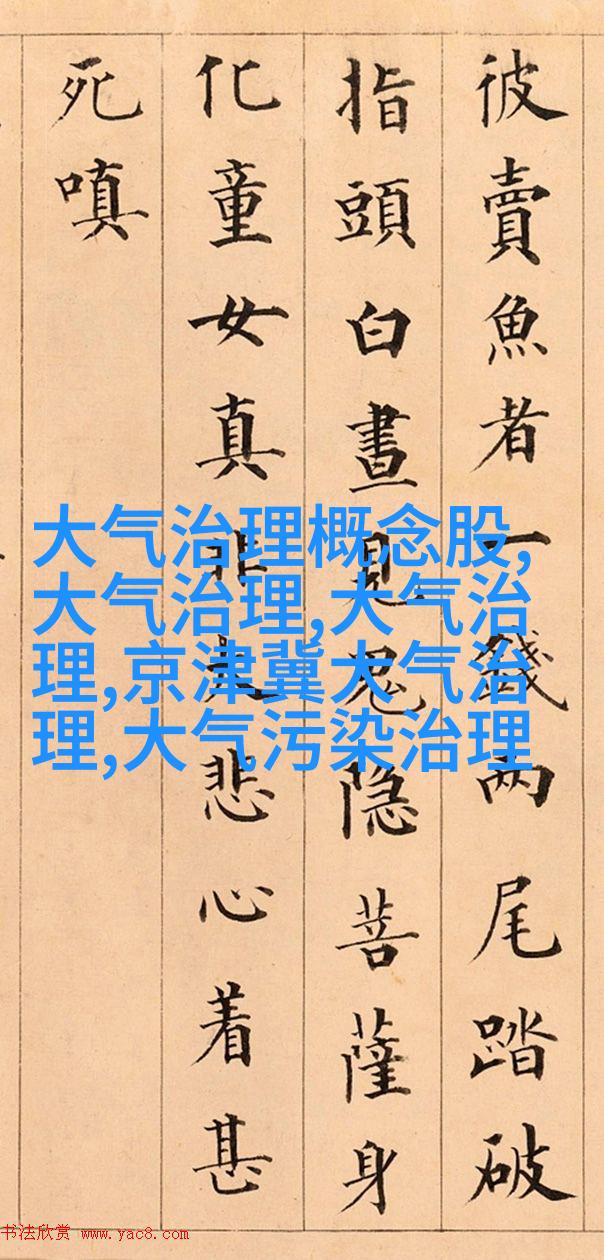 彼賣魚者一錢两尾踏破
指頭白晝見鬼隐菩薩身
化童女真非悲心着甚
死嗔
大气治理概念股,
大气治理,大气治
理,京津冀大气治
理,大气污染治理
书法欣赏 www.yac8.com